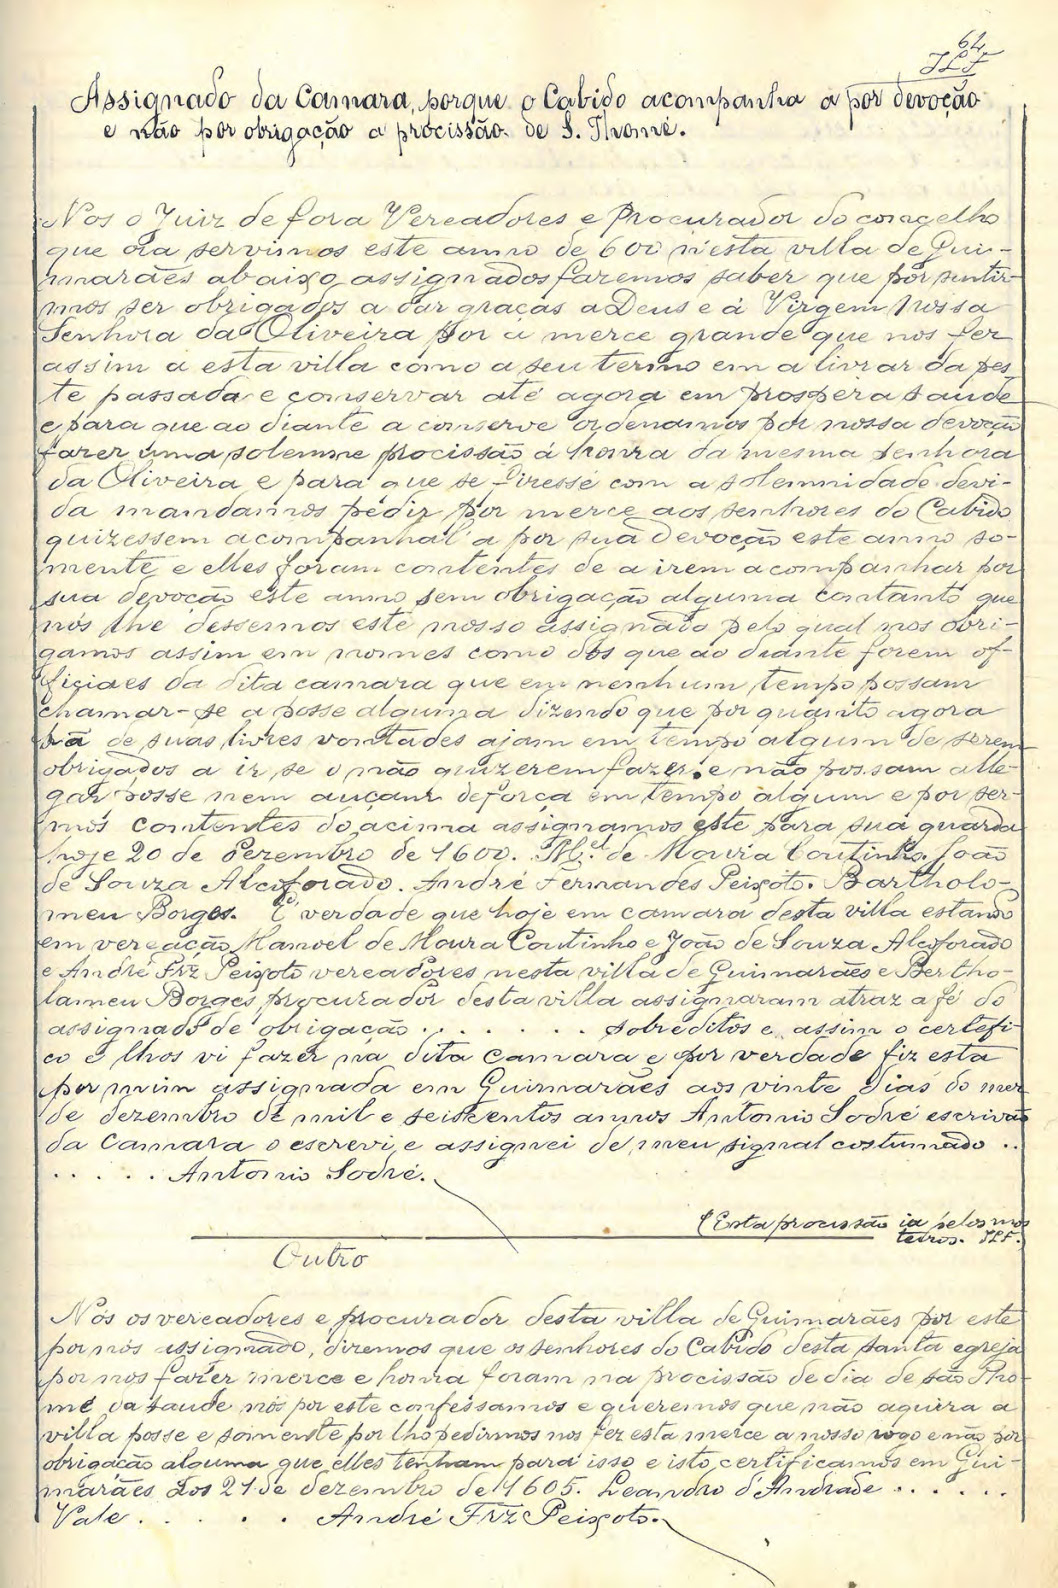 64
JLF
Assignado da Camara, porque o Cabido acompanha a por devoção
e não por obrigação a procissão de S. Thomé.
Nos o Juiz de fora Vereadores e Procurador do concelho
que ora servimos este anno de 600 n'esta villa de Gui-
marães abaixo assignados fazemos saber que por sentir-
mos ser obrigados a dar graças a Deus e á Virgem Nossa
Senhora da Oliveira por a merce grande que nos fez
assim a esta villa como a seu termo em a livrar da pes-
te passada e conservar até agora em prospera saude
e para que ao diante a conserve ordenamos por nossa devoção
fazer uma solemne procissão á honra da mesma Senhora
da Oliveira e para que se fizesse com a solemnidade devi-
da mandamos pedir por merce aos senhores do Cabido
quizessem acompanhal'a por sua devoção este anno so-
mente e elles foram contentes de a irem acompanhar por
sua devoção este anno sem obrigação alguma contanto que
nos lhe dessemos este nosso assignado pelo qual nos obri-
gamos assim em nomes como dos que ao diante forem of-
ficiaes da dita camara que em nenhum tempo possam
chamar-se a posse alguma dizendo que por quanto agora
vã de suas livres vontades ajam em tempo algum de serem
obrigados a ir se o não quizerem fazer e não possam alle-
gar posse nem auçam de força em tempo algum e por ser-
mos contentes do acima assignamos este para sua guarda
hoje 20 de dezembro de 1600. M.el de Moura Coutinho. João
de Souza Alcoforado. André Fernandes Peixoto. Bartholo-
meu Borges. É verdade que hoje em camara desta villa estando
em vereação Manoel de Moura Coutinho e João de Souza Alcoforado
e André Frz Peixoto vereadores nesta villa de Guimarães e Bertho-
lameu Borges procurador desta villa assignaram atraz a fé do
assignado de obrigação . . . . . . . sobreditos e assim o certefi-
co e lhos vi fazer na dita camara e por verdade fiz esta
por mim assignada em Guimarães aos vinte dias do mez
de dezembro de mil e seiscentos annos Antonio Sodré escrivão
da Camara o escrevi e assignei de meu signal costumado . .
. . . . . Antonio Sodré.
(Esta procissão ia pelos mos
teiros. JLF.)
Outro
Nós os vereadores e procurador desta villa de Guimarães por este
por nós assignado, dizemos que os senhores do Cabido desta santa egreja
por nos fazer merce e honra foram na procissão de dia de são Tho-
mé da saude nós por este confessamos e queremos que não aquira a
villa posse e somente por lho pedirmos nos fez esta merce a nosso rogo e não por
obrigação alguma que elles tenham para isso e isto certificamos em Gui-
marães aos 21 de dezembro de 1605. Leandro d'Andrade . . . . . .
Vale . . . . . André Frz Peixoto.